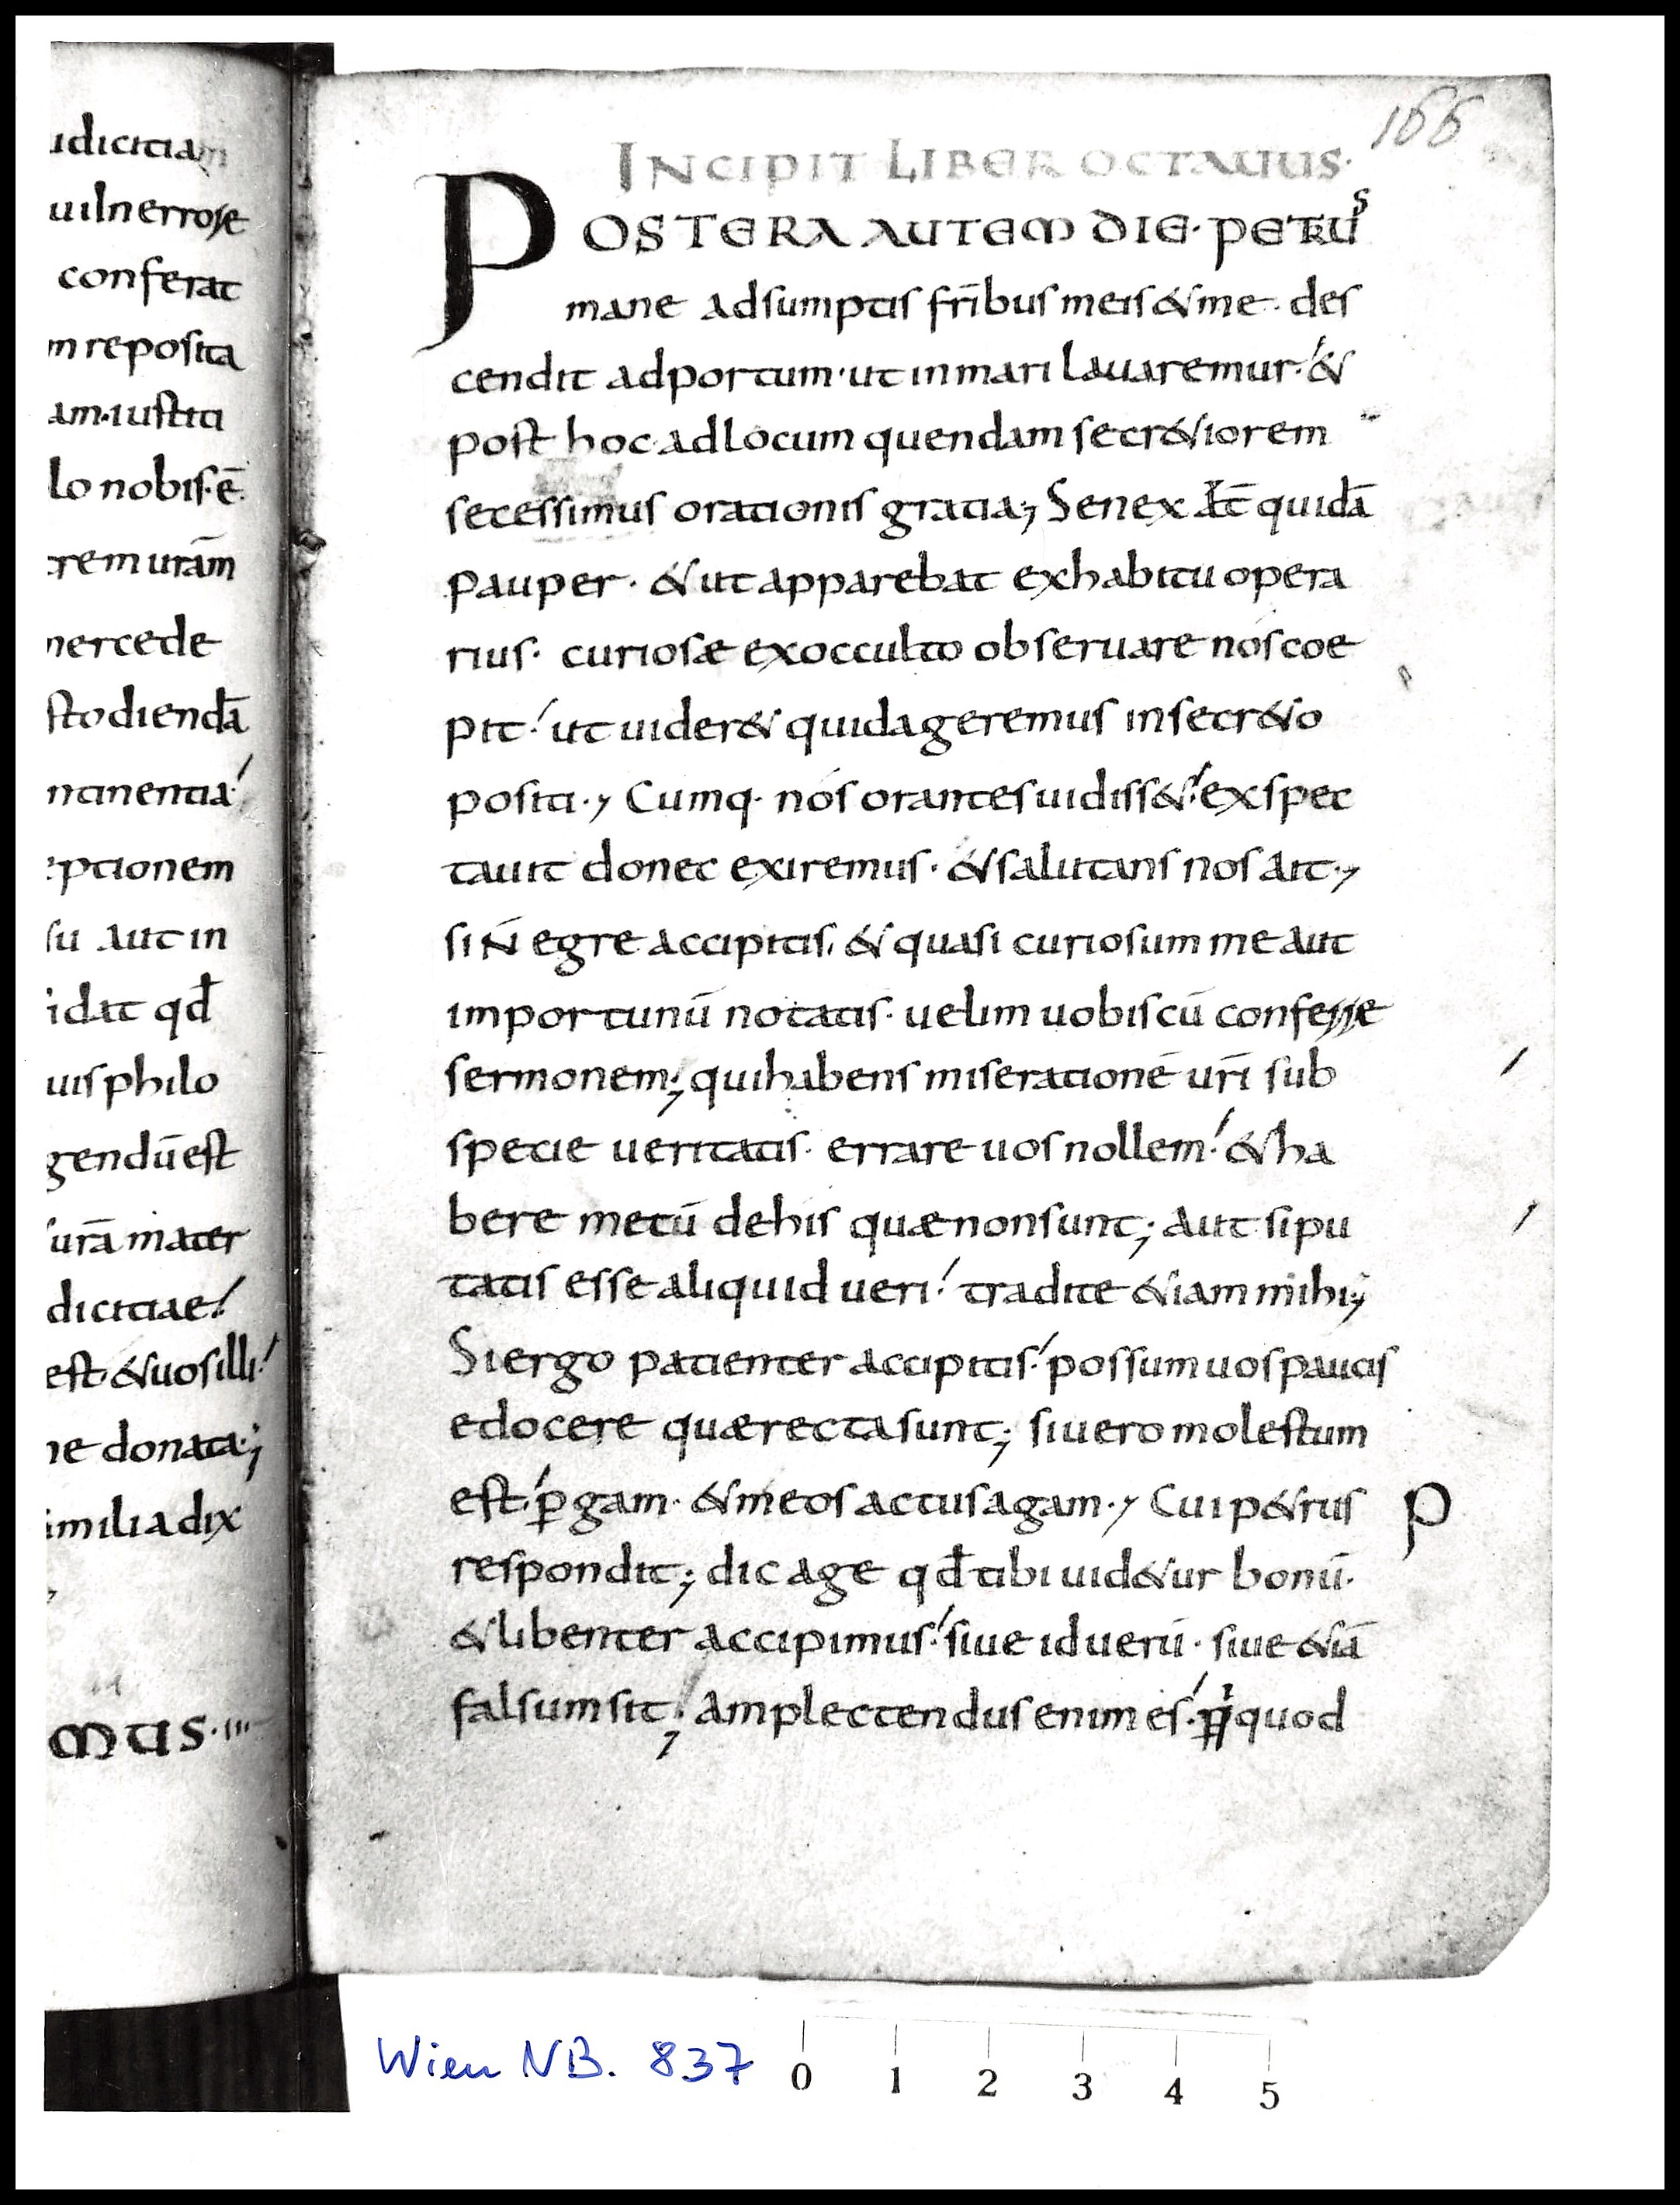 udicitiam
uiln errore
conferat
m reposita
am·iustiti
lo nobis·ē·
rem urām
mercede
stodiendā
ntinentia
eptionem
su aut in
idat qđ
uisphilo
gendū est
urā mater
dicitiae
est &uosilli
ne donata;
imiliadix
mtis·III
166
INCIPIT LIBER OCTAUUS·
POSTERA AUTEM DIE· PETRUS
mane adsumptis fr̄ibus meis &me· des
cendit adportum·ut inmari lauaremur·&
post hoc adlocum quendam secr&iorem
secessimus orationis gratia; Senex aut̄ quidā
pauper· &ut apparebat exhabitu opera
rius· curiosæ exocculto obseruare nos coe
pit· ut uider& quidageremus insecr&o
positi·, Cumq· nos orantes uidiss&· exspec
tauit donec exiremus· &salutans nos ait·,
si N̄ egre accipitis, & quasi curiosum me aut
importunū notatis· uelim uobiscū conferre
sermonem; quihabens miserationē ur̄i sub
specie ueritatis· errare uos nollem· &ha
bere metū dehis quæ nonsunt; aut sipu
tatis esse aliquid ueri· tradite &iam mihi;
Siergo patienter accipitis· possum uos paucis
edocere quærectasunt; siuero molestum
est· p̱gam· &meos actus agam·, Cui p&rus
P
respondit; dic age qđ tibi uid&ur bonū·
&libenter accipimus· siue id uerū· siue &iā
falsum sit; Amplectendus enim es· quod
Wien NB. 837
0 1 2 3 4 5